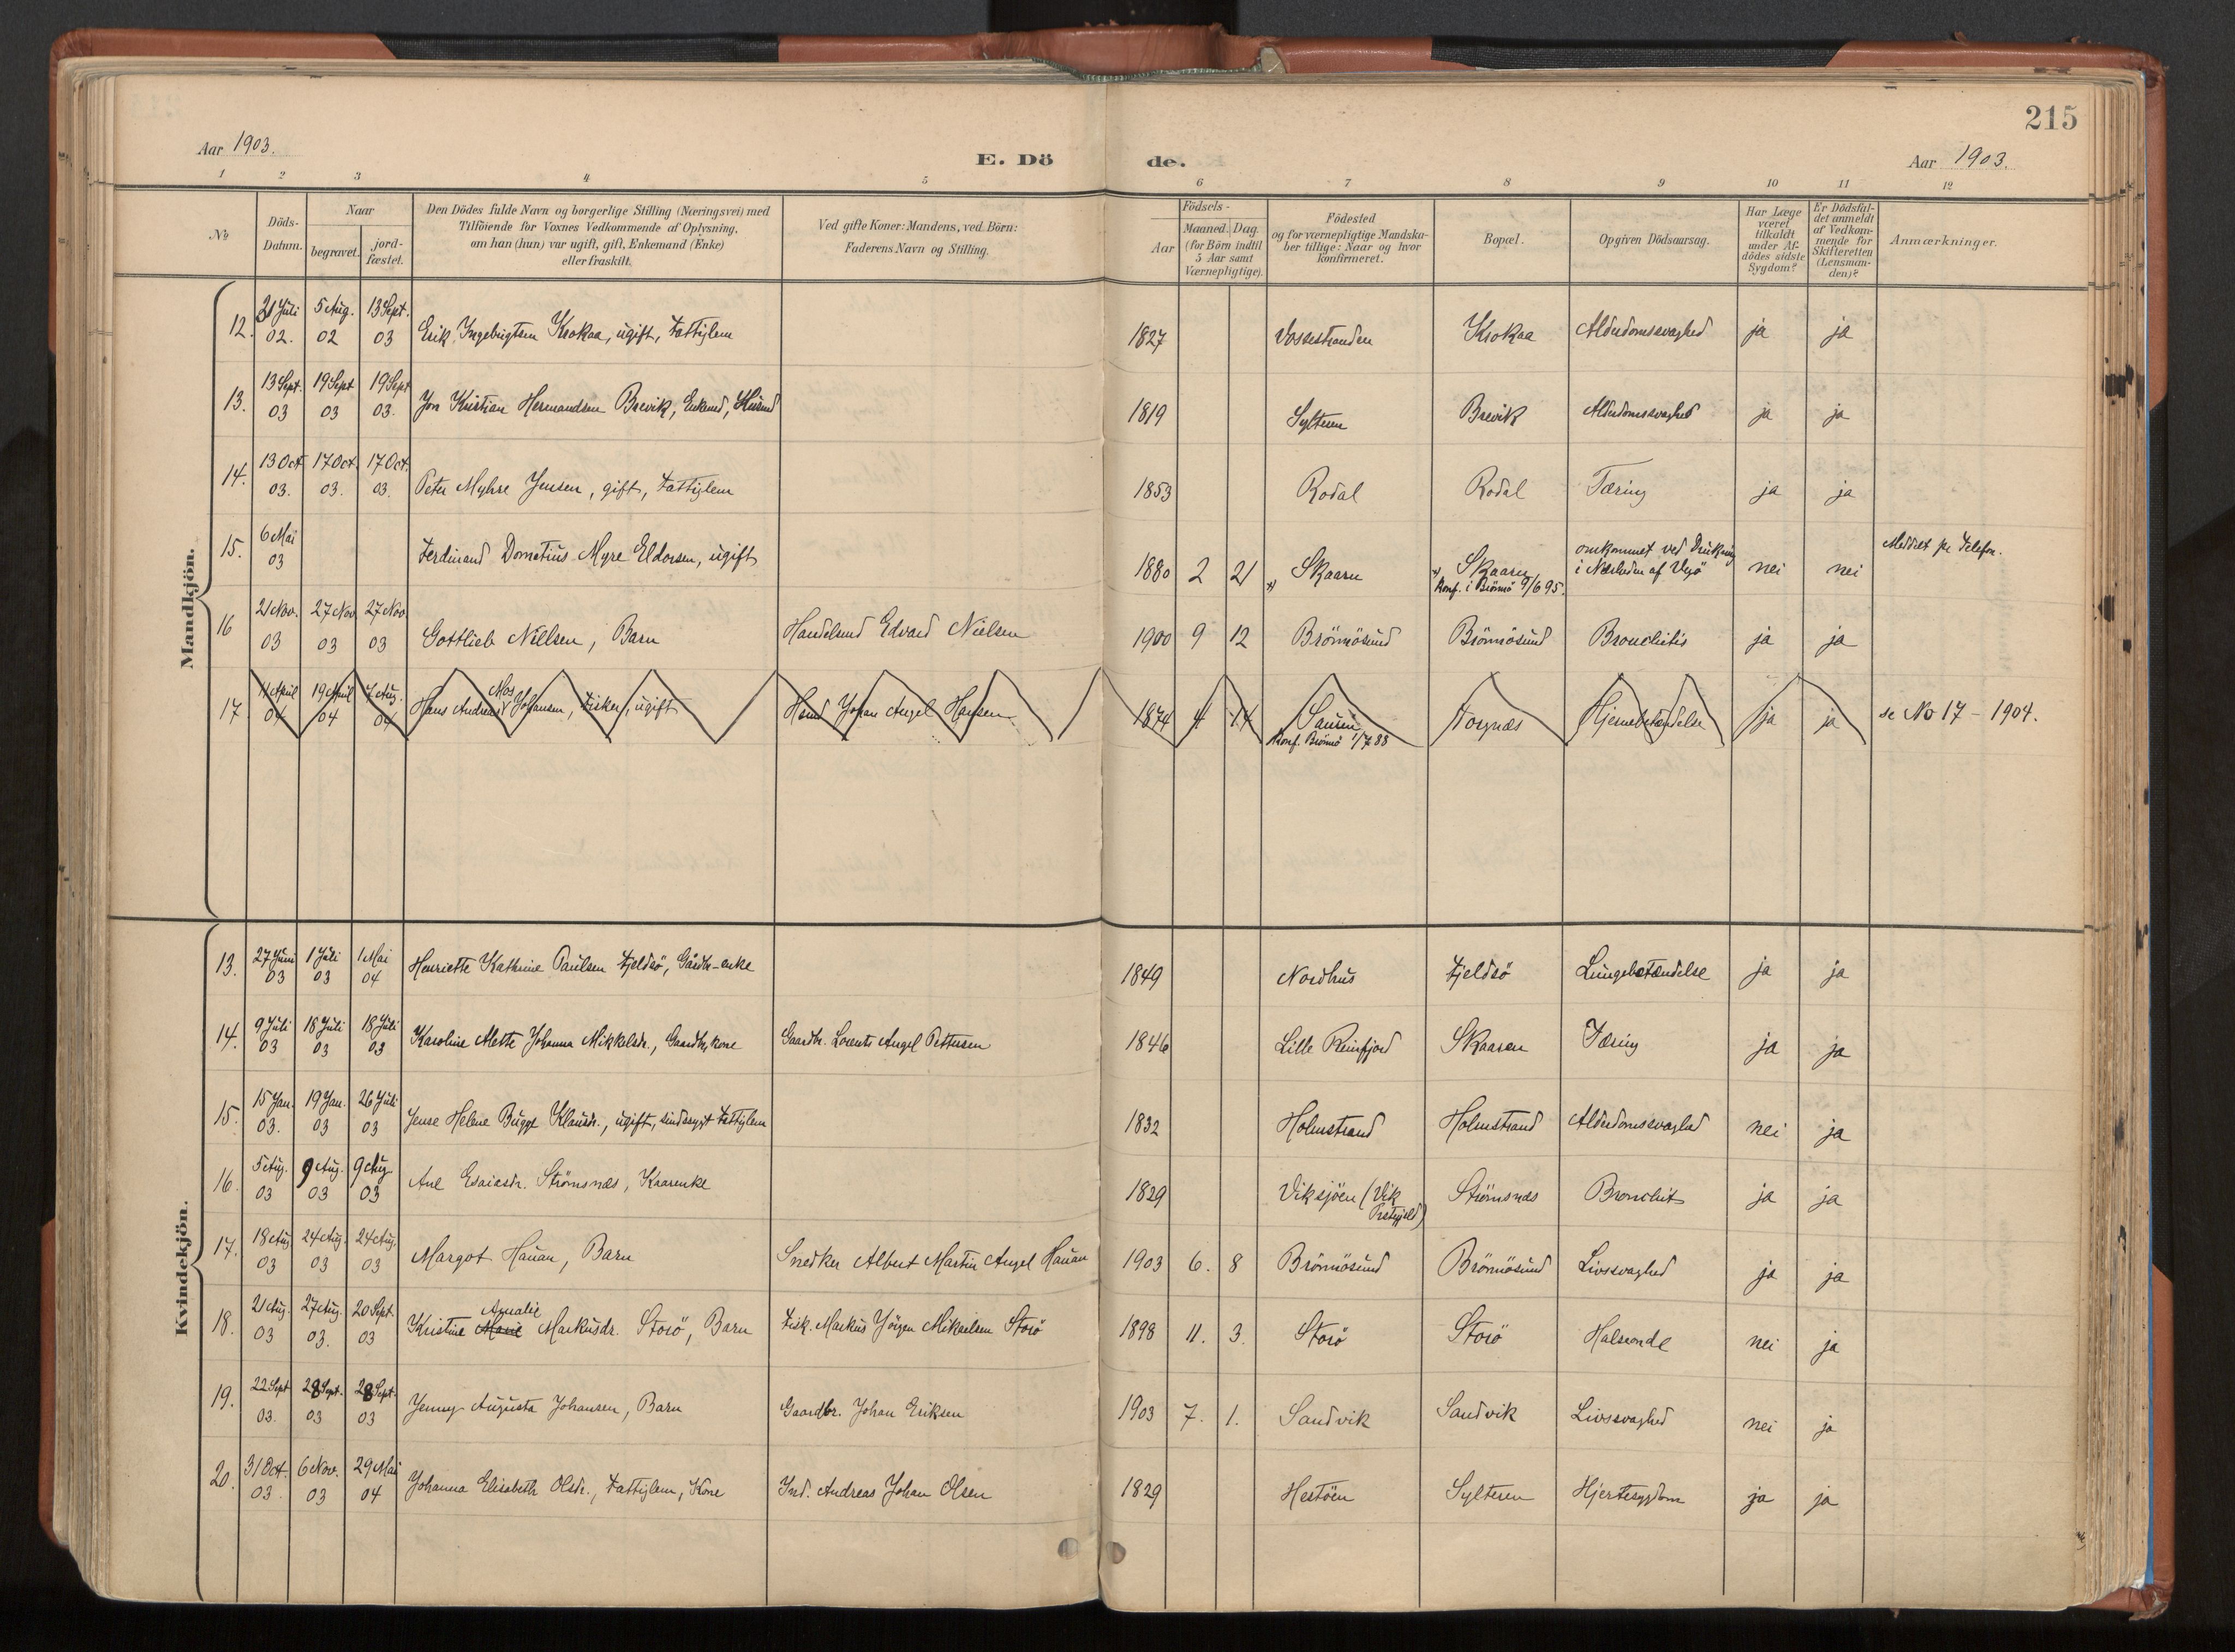 215
Aar 1903.
E. Dö
de.
Aar 1903.
1 2 3 4 5 6 7 8 9 10 11 12
No
Döds-Datum.
Naar
begravet.
jord-fæstet.
Den Dödes fulde Navn og borgerlige Stilling (Næringsvei) med
Tilföiende for Voxnes Vedkommende af Oplysning,
om han (hun) var ugift, gift, Enkemand (Enke)
eller fraskilt.
Ved gifte Koner: Mandens, ved Börn:
Faderens Navn og Stilling.
Födsels-
Aar
Maaned. Dag.
(for Börn indtil
5 Aar samt
Værnepligtige).
Födested
og for værnepligtige Mandska-
ber tillige: Naar og hvor
konfirmeret.
Bopæl.
Opgiven Dödsaarsag.
Har Læge
været
tilkaldt
under Af-
dödes sidste
Sygdom?
Er Dödsfal-
det anmeldt
af Vedkom-
mende for
Skifteretten
(Lensman-
den)?
Anmærkninger.
Mandkjön.
12. 21 Juli 02. 5 Aug. 02 13 Sept. 03 Erik Ingebrigtsen Krokaa, ugift, Fattiglem 1827 Vossestranden Krokaa Alderdomssvaghed ja ja
13. 13 Sept. 03 19 Sept 03 19 Sept 03. Jon Kristian Hermandsen Brevik, Enkemd, Husmd 1819 Sylteren Brevik Alderdomssvaghed ja ja
14. 13 Oct 03. 17 Oct. 03. 17 Oct. 03. Peter Myhre Jensen, gift, Fattiglem 1853 Rodal Rodal Tæring ja ja
15. 6 Mai 03 Ferdinand Dometius Myre Eldorsen, ugift 1880 2 21 Skaaren Skaaren Konf. i Brönnö 9/6 95. omkommet ved Drukning i Nærheden af Vegö nei nei Meddelt pr Telefon.
16 21 Nov. 03 27 Nov 03 27 Nov. 03 Gottlieb Nielsen, Barn Handelsmd Edvard Nielsen 1900 9 12 Brönnösund Brönnösund Bronchitis ja ja
17. 11 April 04 19 April 04 7 Aug. 04 Hans Andreas Mos Johansen, Fisker, ugift Husmd Johan Angel Hansen 1874 4 14 Sauren Konf. Brönnö 1/7 88 Torgnæs Hjernebetændelse ja ja se No 17 - 1904.
Kvindekjön.
13. 27 Juni 03 1 Juli 03 1 Mai 04 Henriette Kathrine Paulsen Fjeldsö, Gårdbr-enke 1849 Nordhus Fjeldsö Lungebetændelse ja ja
14. 9 Juli 03 18 Juli 03 18 Juli 03 Karoline Mette Johanna Mikkelsdr., Gaardbr.kone Gaardbr. Lorents Angel Pettersen 1846 Lille Reinfjord Skaaren Tæring ja ja
15. 15 Jan. 03. 19 Jan. 03 26 Juli 03 Jense Helene Bugge Klausdr., ugift, sindssygt Fattiglem 1832 Holmstrand Holmstrand Alderdomssvaghed nei ja
16. 5 Aug. 03 9 Aug. 03 9 Aug. 03 Ane Esaiasdr. Strömsnæs, Kaarenke 1829 Viksjöen (Vik Prstgjeld) Strömsnæs Bronchit ja ja
17. 18 Aug 03 24 Aug. 03 24 Aug. 03 Margot Hauan, Barn Snedker Albert Martin Angel Hauan 1903 6. 8 Brönnösund Brönnösund Livssvaghed ja ja
18. 21 Aug. 03 27 Aug. 03. 20 Sept. 03 Kristine Marie Amalie Markusdr. Storö, Barn Fisk. Markus Jörgen Mikaelsen Storö 1898 11. 3. Storö Storö Halsonde nei ja
19. 22 Sept 03. 28 Sept. 03 28 Sept. 03 Jenny Augusta Johansen, Barn Gaardbr. Johan Eriksen 1903 7. 1. Sandvik Sandvik Livssvaghed nei ja
20. 31 Oct. 03. 6 Nov. 03 29 Mai 04 Johanna Elisabeth Olsdr., Fattiglem, Kone Ind. Andreas Johan Olsen 1829 Hestöen Sylteren Hjertesygdom ja ja